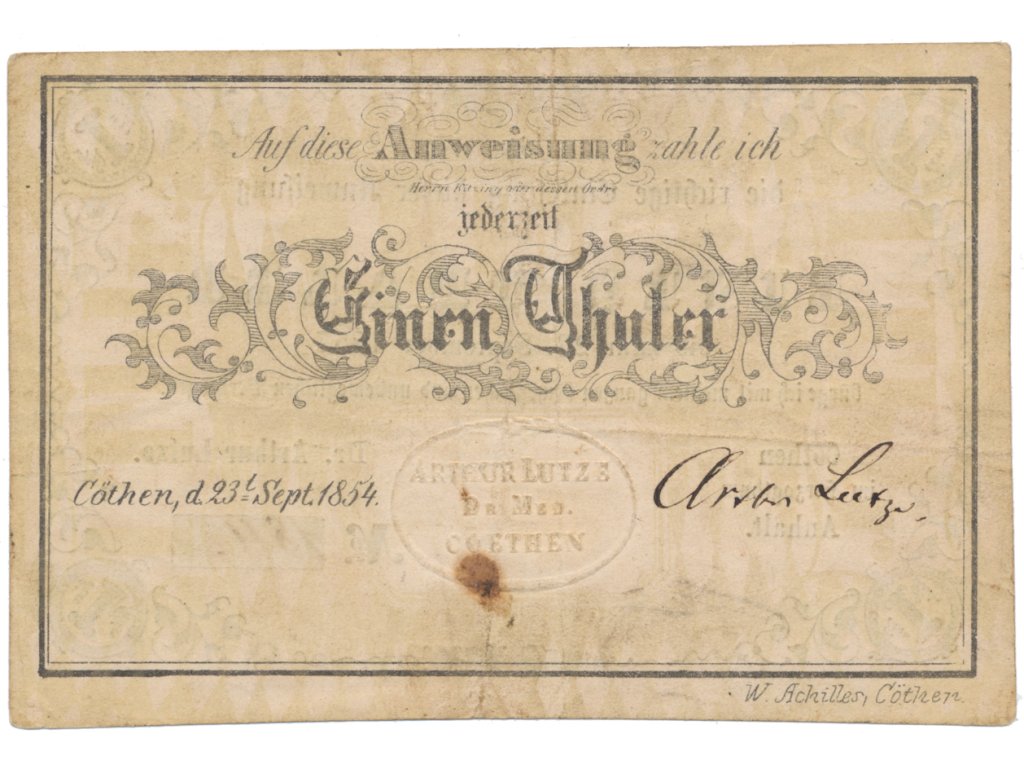 Auf diese Anweisung zahle ich
Herrn Kitzing oder dessen Ordre
jederzeit
Einen Thaler
ARTHUR LUTZE
DR. MED.
COETHEN
Cöthen, d. 23t. Sept. 1854.
Arthur Lutze.
W. Achilles, Cöthen.